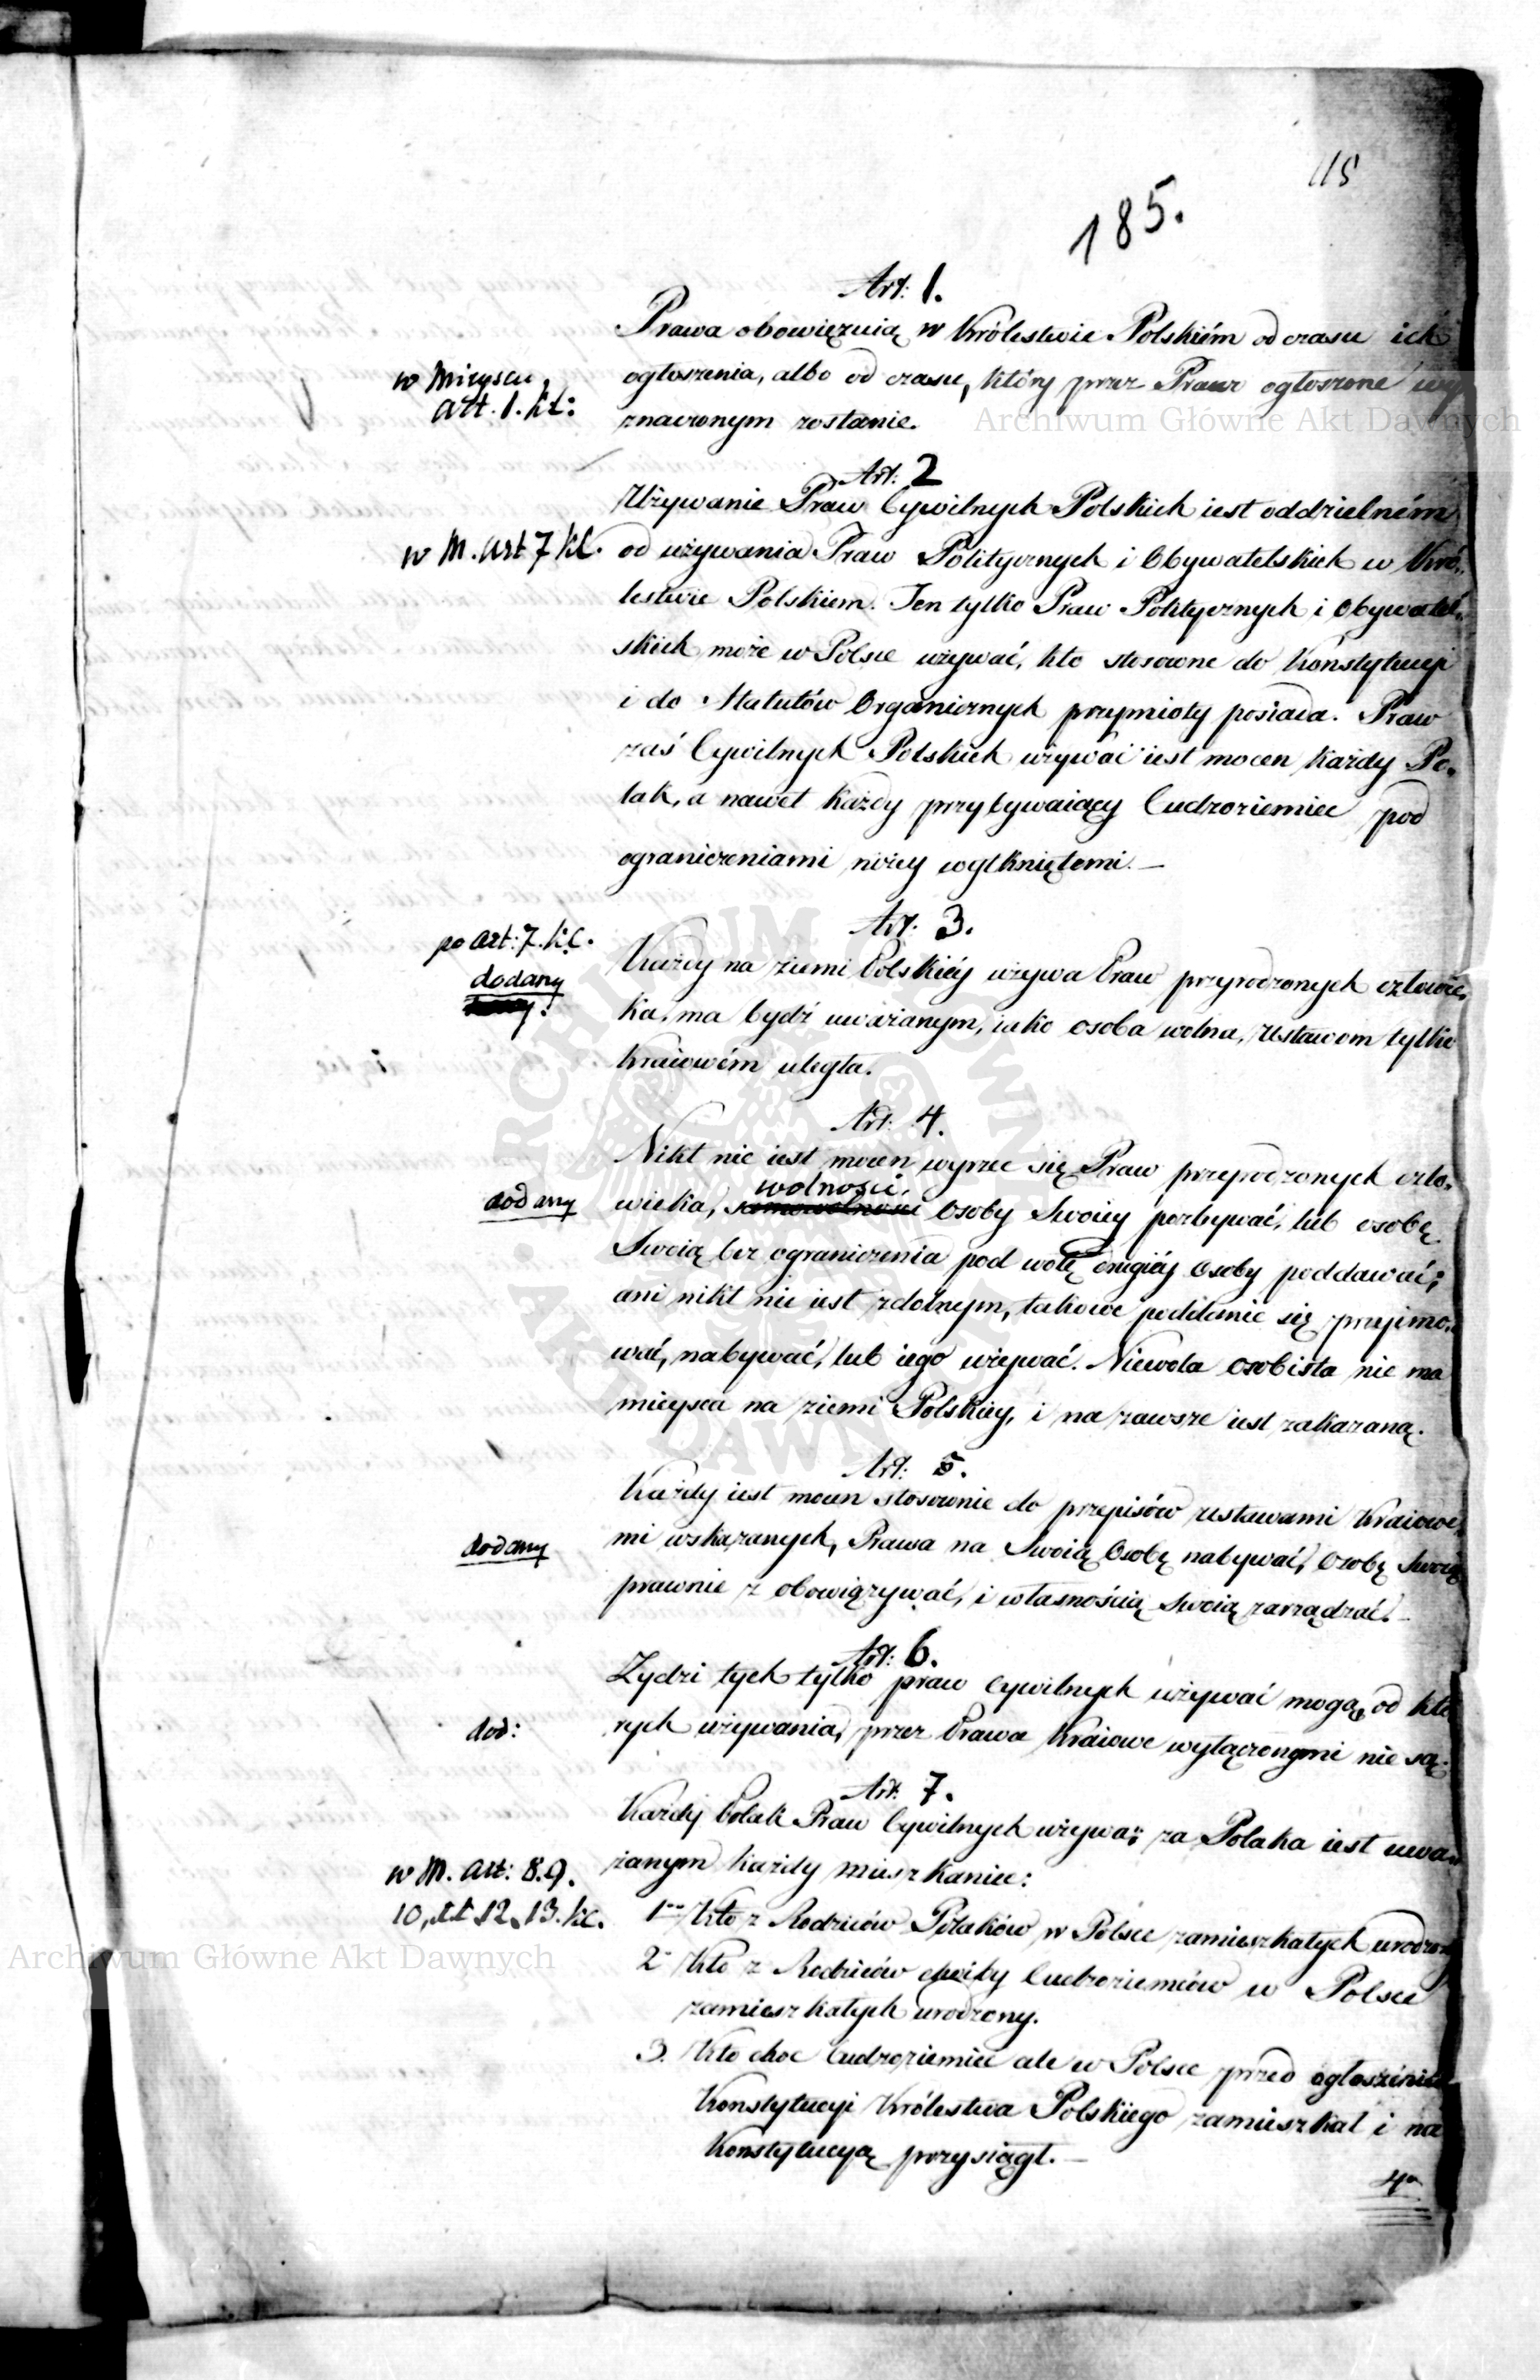 115
185.
Art: 1.
Prawa obowięzuią w Królestwie Polskiém od czasu ich
w Mieyscu
ogłoszenia, albo od czasu, który przez Prawo ogłoszone wy
art. 1. K.C:
znaczonym zostanie.
Archiwum Główne Akt Dawnych
Art: 2
Używanie Praw Cywilnych Polskich iest oddzielném
w M. Art 7 K.C.
od używania Praw Politycznych i Obywatelskich w Kró-
lestwie Polskiem. Ten tylko Praw Politycznych i Obywatel-
skich może w Polsce używać, kto stosowne do Konstytucyi
i do Statutów Organicznych przymioty posiada. Praw
zaś Cywilnych Polskich używać iest mocen każdy Po-
lak, a nawet każdy przybywaiący Cudzoziemiec pod
ograniczeniami niżey wytkniętemi. —
Art. 3.
po Art: 7. K.C.
dodany
Każdy na ziemi Polskiéy używa Praw przyrodzonych człowie-
ka, ma bydź uważanym, iako osoba wolna, Ustawom tylko
Kraiowém uległa.
Art: 4.
Nikt nie iest mocen wyrzec się Praw przyrodzonych czło-
wolności,
dodany
wieka, samowolności Osoby Swoiey pozbywać, lub osobę
Swoią bez ograniczenia pod wolę drugiéy Osoby poddawać;
ani nikt nie iest zdolnym, takowe poddanie się przyimo-
wać, nabywać, lub iego używać. Niewola osobista nie ma
mieysca na ziemi Polskiey, i na zawsze iest zakazaną.
Art: 5.
Każdy iest mocen stosownie do przepisów Ustawami Kraiowe-
dodany
mi wskazanych, Prawa na Swoią Osobę nabywać, Osobę Swoią
prawnie z obowiązywać, i własnością Swoią zarządzać. —
Art: 6.
Zydzi tych tylko praw Cywilnych używać mogą, od któ
dod:
rych używania, przez Prawa Kraiowe wyłączonymi nie są.
Art: 7.
Każdy Polak Praw Cywilnych używa; za Polaka iest uwa-
w M. Art: 8. 9.
żanym każdy mieszkaniec:
10, 11 12. 13. K.C.
1 Kto z Rodziców Polaków w Polsce zamieszkałych urodzony
Archiwum Główne Akt Dawnych
2 Kto z Rodziców choćby Cudzoziemców w Polsce
zamieszkałych urodzony.
3. Kto choc Cudzoziemiec ale w Polsce przed ogłoszeniem
Konstytucyi Królestwa Polskiego zamieszkał i na
Konstytucyą przysiągł. —
4
ARCHIWUM GŁÓWNE AKT DAWNYCH